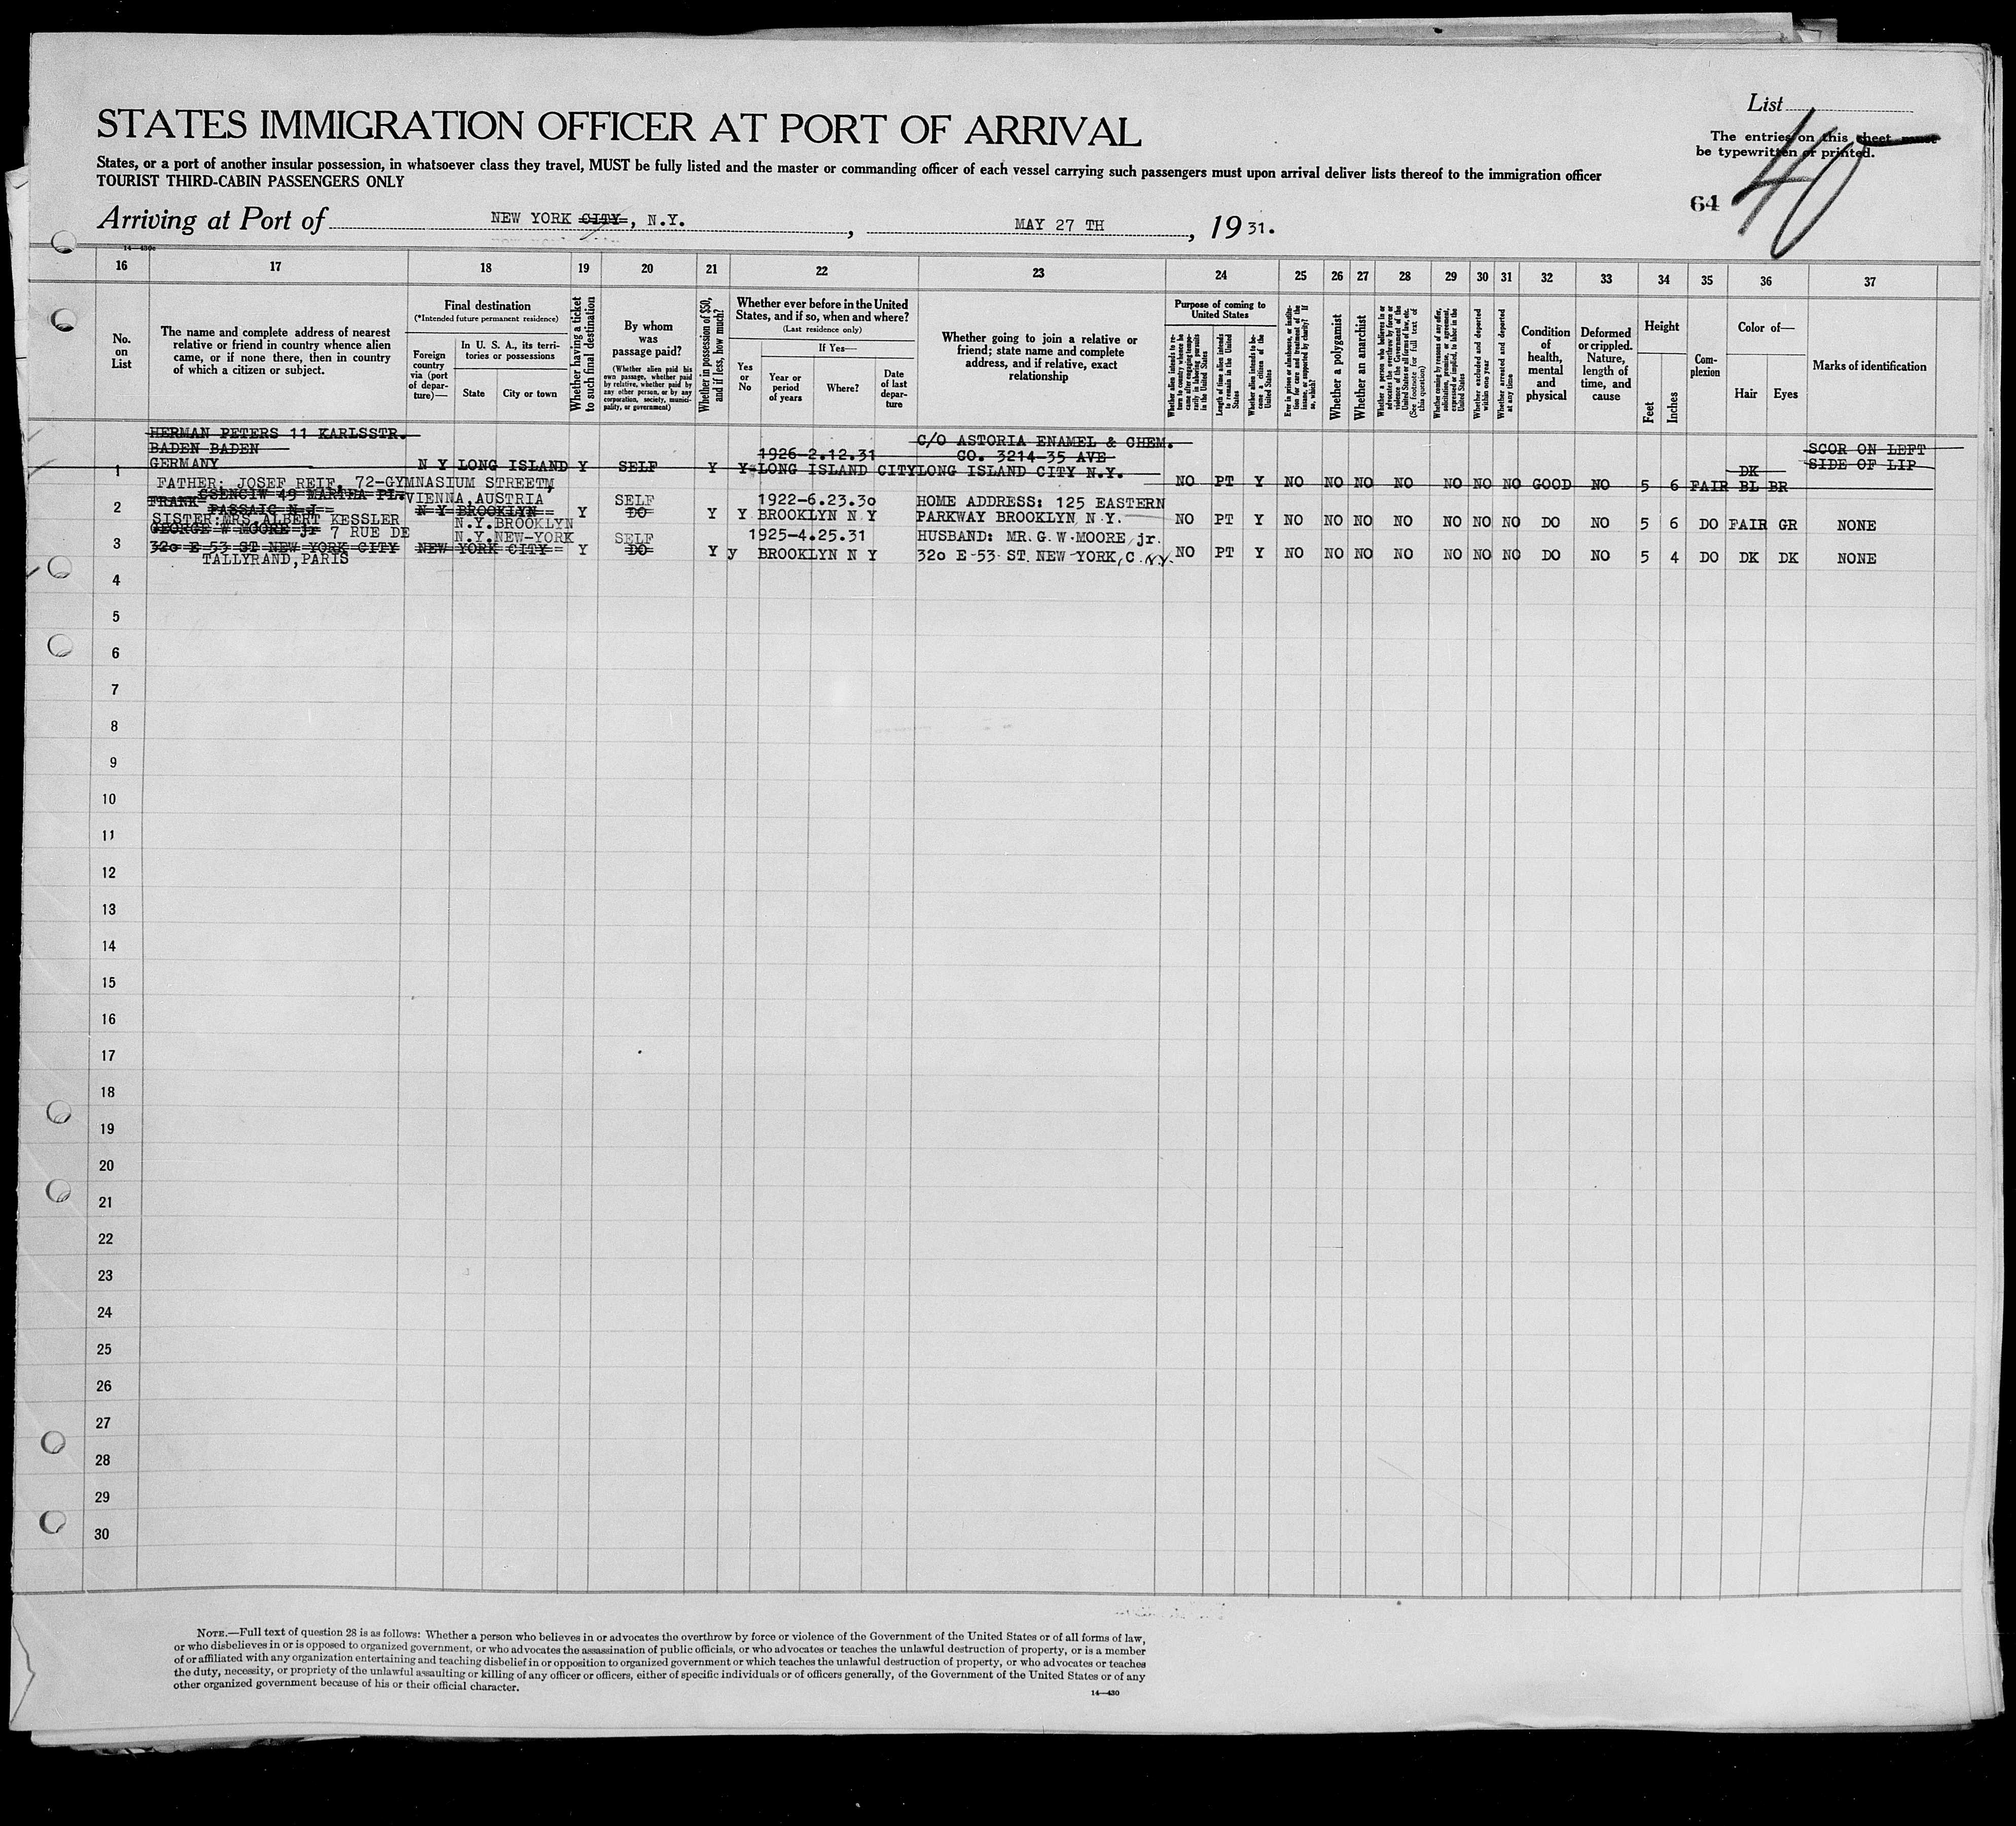 List
The entries on this sheet must
be typewritten or printed.
40
64
STATES IMMIGRATION OFFICER AT PORT OF ARRIVAL
States, or a port of another insular possession, in whatsoever class they travel, MUST be fully listed and the master or commanding officer of each vessel carrying such passengers must upon arrival deliver lists thereof to the immigration officer
TOURIST THIRD-CABIN PASSENGERS ONLY
Arriving at Port of NEW YORK CITY, N.Y., MAY 27 TH, 1931.
16 17 18 19 20 21 22 23 24 25 26 27 28 29 30 31 32 33 34 35 36 37
No. on List
The name and complete address of nearest
relative or friend in country whence alien
came, or if none there, then in country
of which a citizen or subject.
Final destination
(*Intended future permanent residence)
Foreign country via (port of departure)—
In U. S. A., its territories or possessions
State City or town
Whether having a ticket to such final destination
By whom was passage paid?
(Whether alien paid his own passage, whether paid by relative, whether paid by any other person, or by any corporation, society, municipality, or government)
Whether in possession of $50, and if less, how much?
Whether ever before in the United
States, and if so, when and where?
(Last residence only)
Yes or No
If Yes—
Year or period of years
Where?
Date of last departure
Whether going to join a relative or
friend; state name and complete
address, and if relative, exact
relationship
Purpose of coming to United States
Whether alien intends to return to country whence he came after engaging temporarily in laboring pursuits in the United States
Length of time alien intends to remain in the United States
Whether alien intends to become a citizen of the United States
Ever in prison or almshouse, or institution for care and treatment of the insane, or supported by charity? If so, which?
Whether a polygamist
Whether an anarchist
Whether a person who believes in or advocates the overthrow by force or violence of the Government of the United States or all forms of law, etc. (See footnote for full text of this question)
Whether coming by reasons of any offer, solicitation, promise, or agreement, expressed or implied, to labor in the United States
Whether excluded and deported within one year
Whether arrested and deported at any time
Condition of health, mental and physical
Deformed or crippled. Nature, length of time, and cause
Height
Feet Inches
Complexion
Color of—
Hair Eyes
Marks of identification
HERMAN PETERS 11 KARLSSTR.
BADEN BADEN
1 GERMANY N Y LONG ISLAND Y SELF Y Y 1926-2.12.31 LONG ISLAND CITY
C/O ASTORIA ENAMEL & CHEM.
CO. 3214-35 AVE
LONG ISLAND CITY N.Y. NO PT Y NO NO NO NO NO NO NO GOOD NO 5 6 FAIR DK BL BR
SCOR ON LEFT
SIDE OF LIP
FATHER: JOSEF REIF, 72-GYMNASIUM STREET,
VIENNA, AUSTRIA
2 FRANK CSENCIW 49 MARTHA PL.
PASSAIC N.J. N Y BROOKLYN Y SELF DO Y Y 1922-6.23.30 BROOKLYN N Y
N.Y. BROOKLYN
HOME ADDRESS: 125 EASTERN
PARKWAY BROOKLYN N.Y. NO PT Y NO NO NO NO NO NO NO DO NO 5 6 DO FAIR GR NONE
SISTER: MRS. ALBERT KESSLER
7 RUE DE
TALLYRAND, PARIS
3 GEORGE W MOORE jr
320 E 53 ST NEW YORK CITY NEW YORK CITY Y SELF DO Y y 1925-4.25.31 BROOKLYN N Y
N.Y. NEW-YORK
HUSBAND: MR. G.W.MOORE, jr.
320 E-53 ST. NEW-YORK, C. N.Y. NO PT Y NO NO NO NO NO NO NO DO NO 5 4 DO DK DK NONE
4
5
6
7
8
9
10
11
12
13
14
15
16
17
18
19
20
21
22
23
24
25
26
27
28
29
30
NOTE.—Full text of question 28 is as follows: Whether a person who believes in or advocates the overthrow by force or violence of the Government of the United States or of all forms of law,
or who disbelieves in or is opposed to organized government, or who advocates the assassination of public officials, or who advocates or teaches the unlawful destruction of property, or is a member
of or affiliated with any organization entertaining and teaching disbelief in or opposition to organized government or which teaches the unlawful destruction of property, or who advocates or teaches
the duty, necessity, or propriety of the unlawful assaulting or killing of any officer or officers, either of specific individuals or of officers generally, of the Government of the United States or of any
other organized government because of his or their official character.
14—430